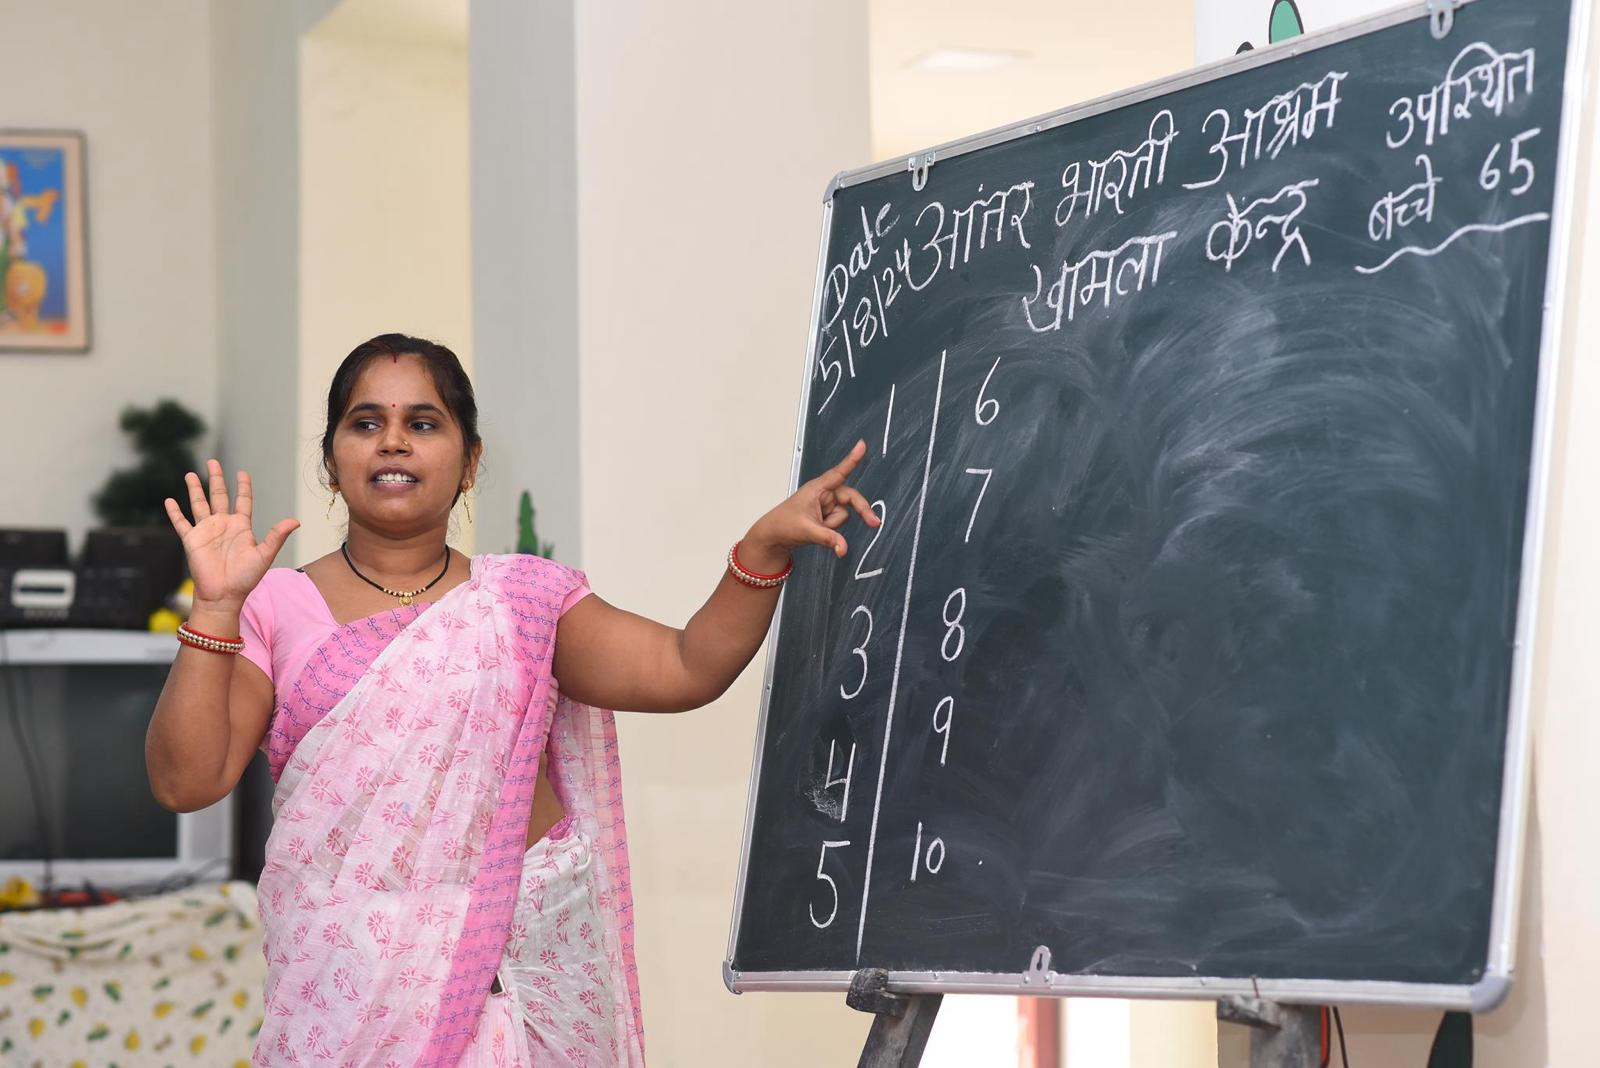 Date
5/8/24
आंतर भारती आश्रम
खामला केन्द्र
उपस्थित
बच्चे 65
1
2
3
4
5
6
7
8
9
10